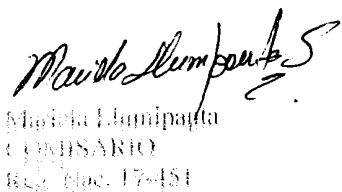 Mariela Llumipanta S
Mariela Llumipanta
COMISARIO
Reg. Nac. 17-451